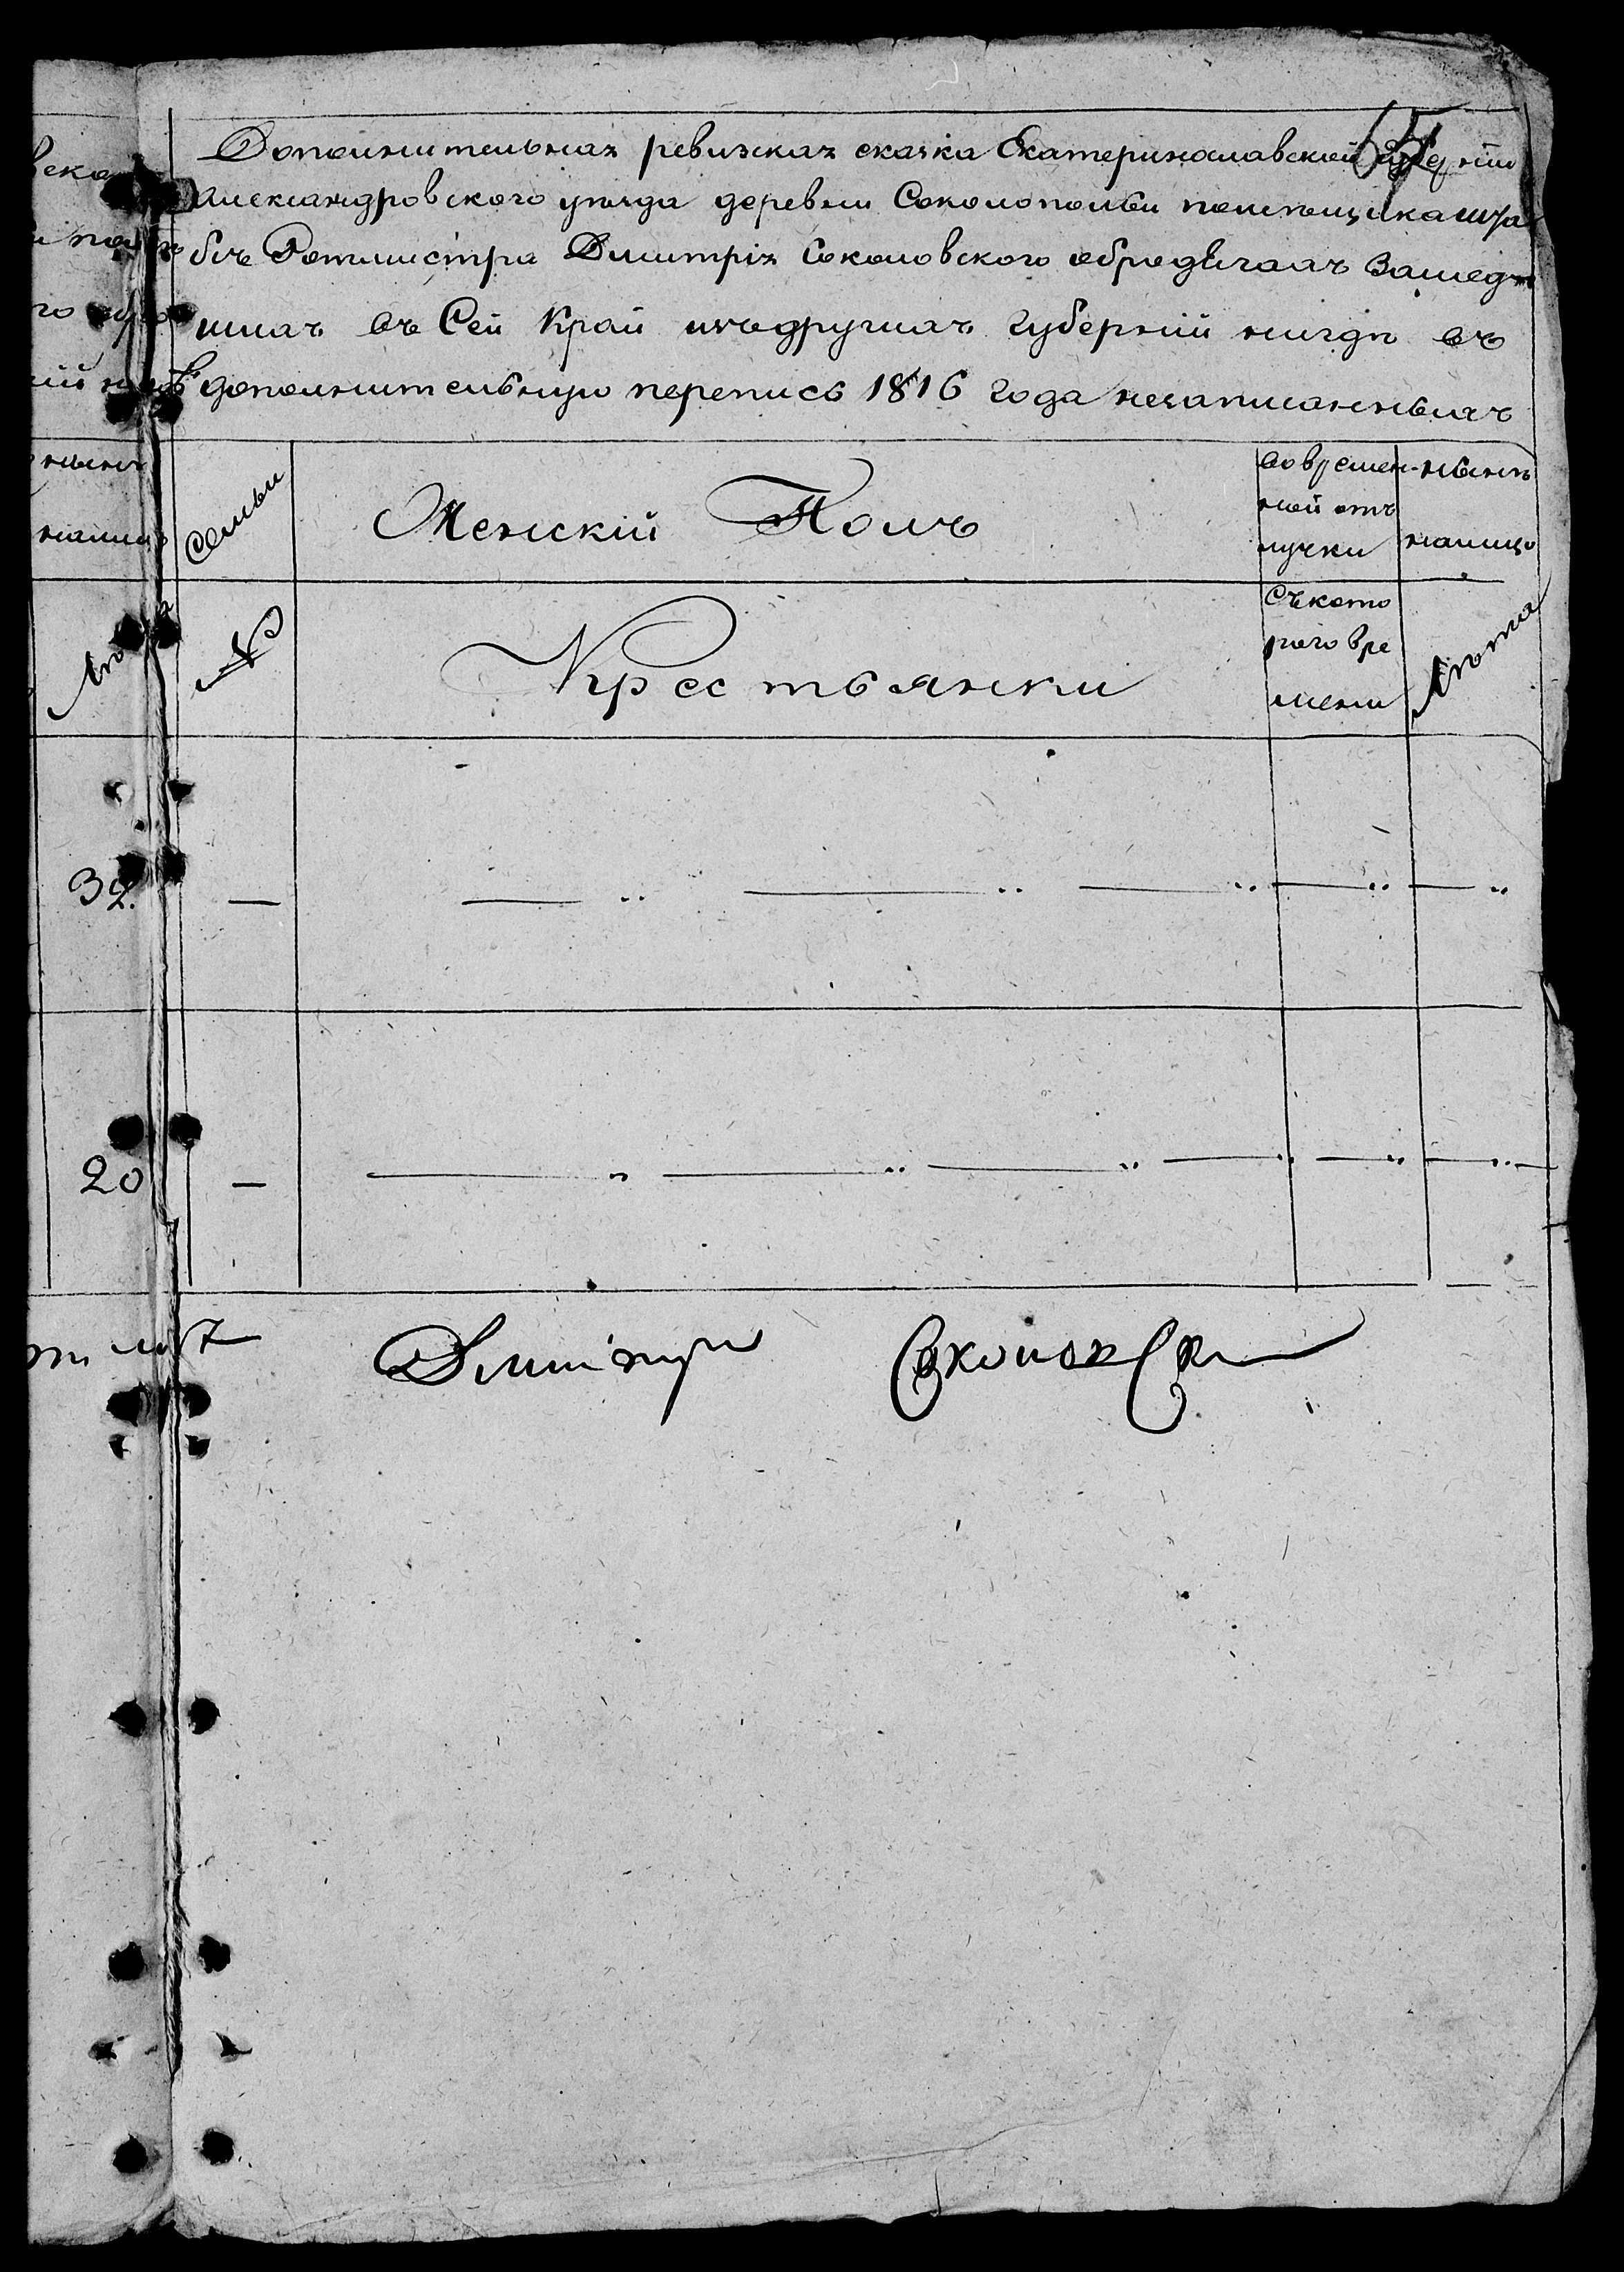 65
Дополнительная ревизская скаска Екатеринославской губерніи
Александровского уѣзда деревни Соколополья помѣщика шта
бсъ Ротмистра Дмитрія Соколовского о бродягахъ Зашед
шихъ въ Сей Край изъ другихъ Губерній нигдѣ въ
дополнительную перепись 1816 года незаписанныхъ
Семьи
Женскій Полъ
во времен-
ной отъ
лучки
нынѣ
налицо
№
Крестьянки
Съ кото
раго вре
мени
Лѣта
32.
20
Дмитрій Соколовской